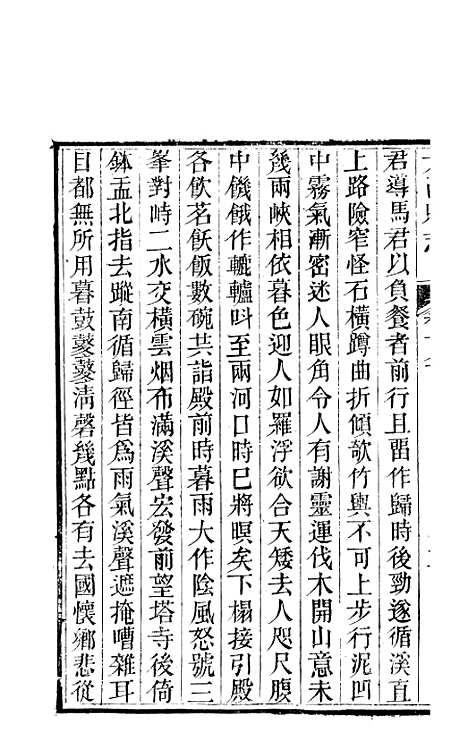 君導馬君以負餐者前行且畱作歸時後勁遂循溪直
上路險窄怪石橫蹲曲折傾欹竹輿不可上步行泥凹
中霧氣漸密迷人眼角令人有謝靈運伐木開山意未
幾兩峽相依暮色迎人如羅浮欲合天矮去人咫尺腹
中饑餓作轆轤呌至兩河口時已將暝矣下榻接引殿
各飲茗飫飯數碗共詣殿前時暮雨大作陰風怒號三
峯對峙二水交橫雲烟布滿溪聲宏發前望塔寺後倚
鉢盂北指去蹤南循歸徑皆爲雨氣溪聲遮掩嘈雜耳
目都無所用暮鼓鼕鼕淸磬幾點各有去國懷鄉悲從